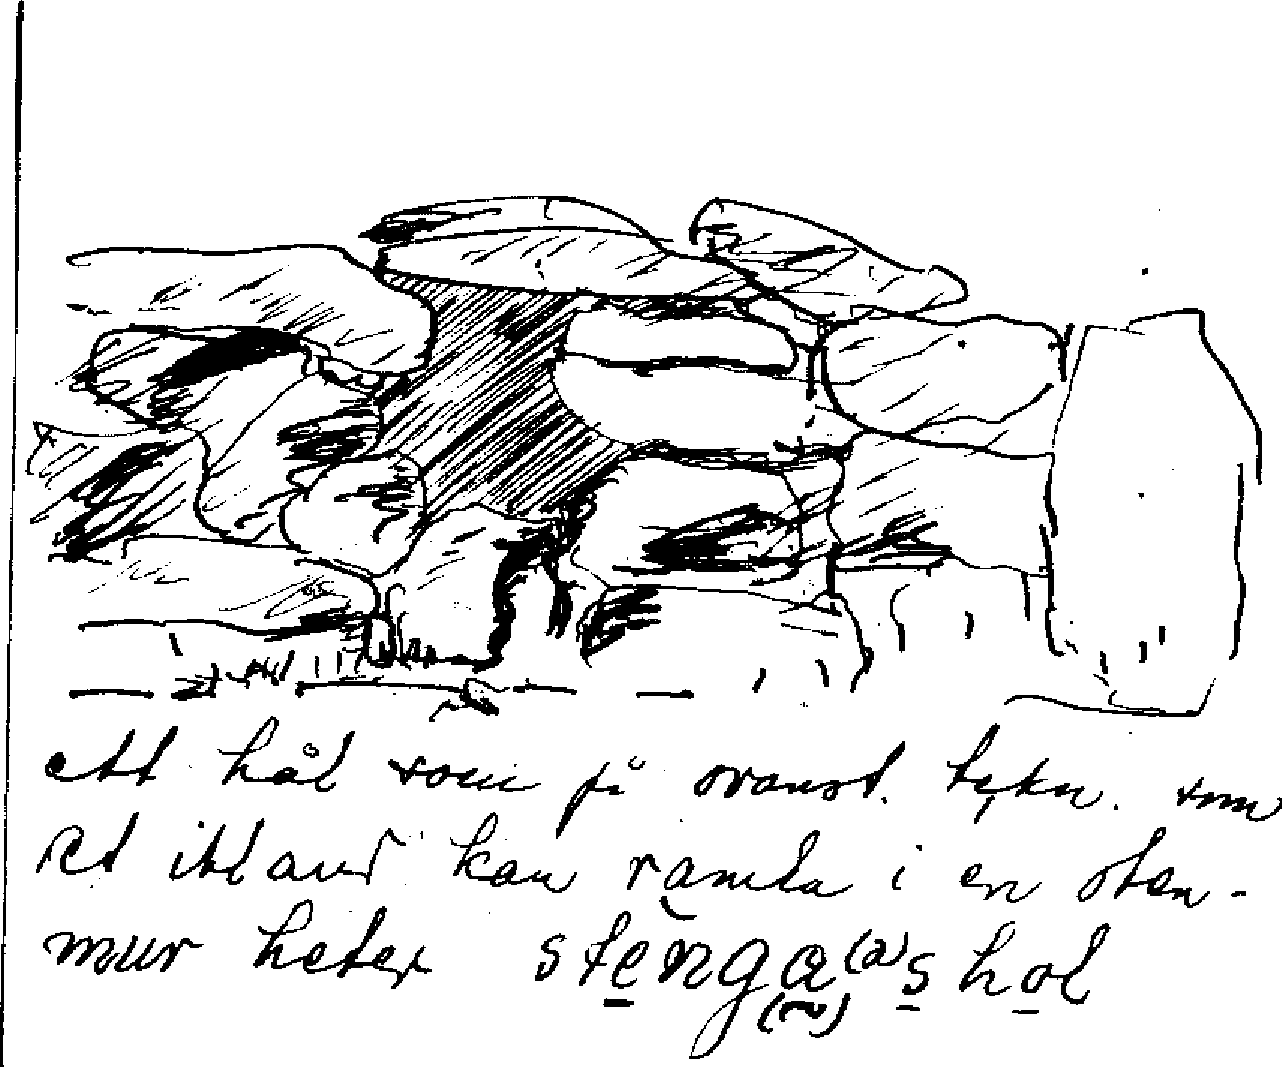 ett hål som på ovanst. teckn. som
det ibland kan ramla i en sten-
mur heter stenga(a)shol